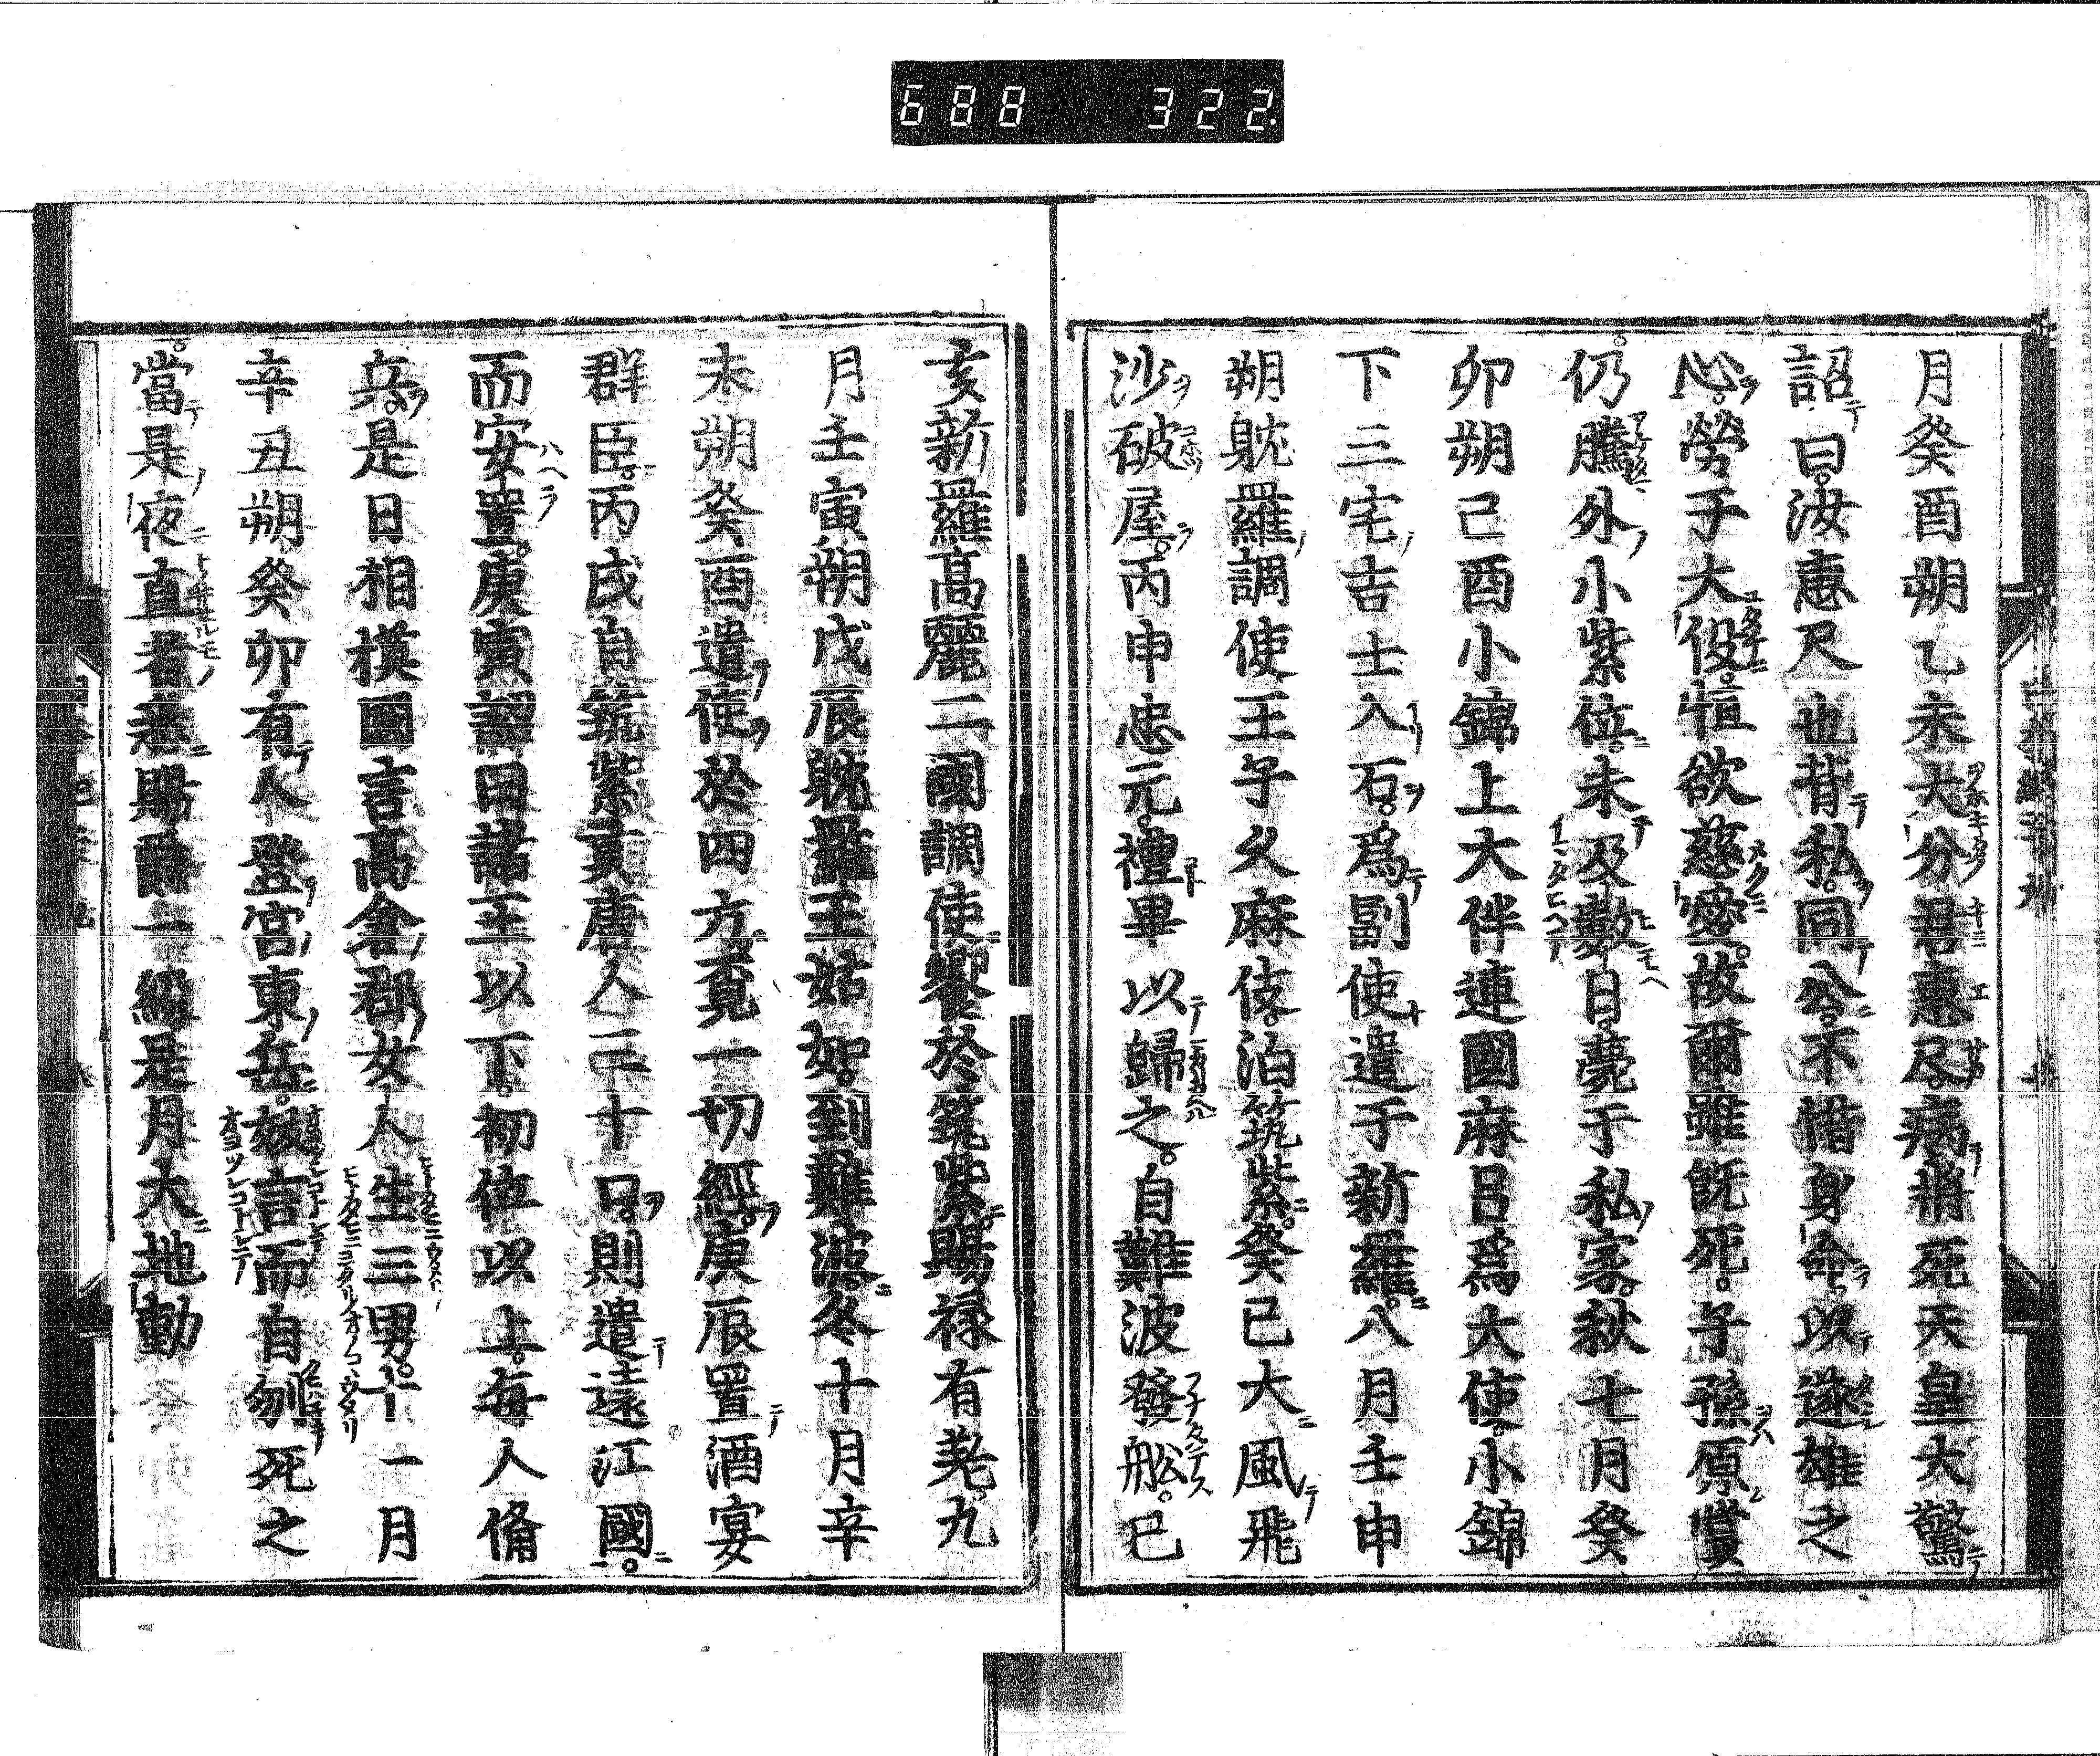 688 322
月癸酉朔乙未大分君惠尺病將死天皇大驚
詔曰汝惠尺也背私同公不惜身命以遂雄之
心勞于大役恒欲慈愛故爾雖既死子孫原賞
仍騰外小紫位未及數日薨于私家秋七月癸
卯朔己酉小錦上大伴連國麻呂爲大使小錦
下三宅吉士入石爲副使遣于新羅八月壬申
朔躭羅調使王子久麻伎泊筑紫癸巳大風飛
沙破屋丙申忠元禮畢以歸之自難波發舩己
亥新羅高麗二國調使饗於筑紫賜禄有差九
月壬寅朔戊辰躭羅王姑如到難波冬十月辛
未朔癸酉遣使於四方覓一切經庚辰置酒宴
群臣丙戌自筑紫貢唐人三十口則遣遠江國
而安置庚寅詔曰諸王以下初位以上每人備
兵是日相模國言高倉郡女人生三男十一月
辛丑朔癸卯有人登宮東岳妖言而自刎死之
當是夜直者悉賜爵一級是月大地動